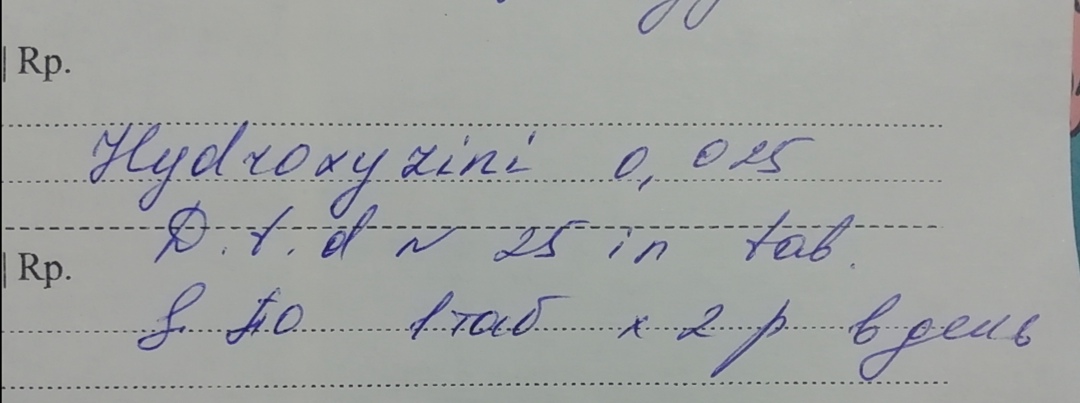 Rp.
Hydroxyzini 0,025
D.t.d N 25 in tab.
Rp.
S. по 1 таб х 2 р в день